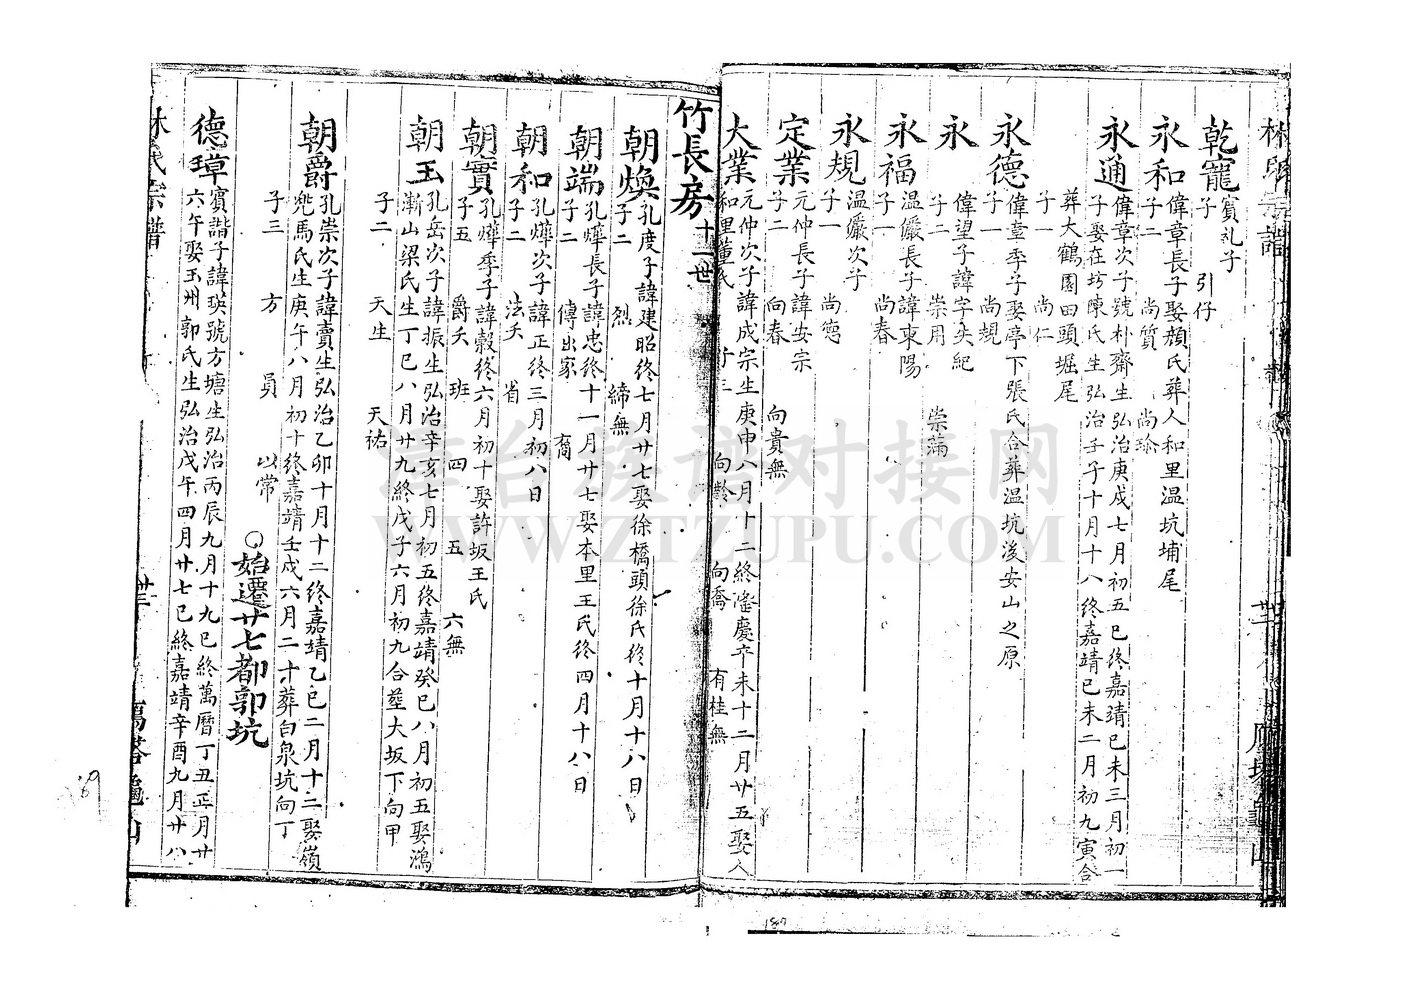 乾寵 賓礼子
子 引仔
永和 偉章長子娶顏氏葬人和里温坑埔尾
子二 尚質 尚瑜
永通 偉章次子號朴齋生弘治庚戌七月初五巳終嘉靖巳未三月初一
子娶在坊陳氏生弘治壬子十月十八終嘉靖巳未二月初九寅合
葬大鶴園田頭堀尾
子一 尚仁
永德 偉章季子娶亭下張氏合葬温坑後安山之原
子一 尚規
永 偉望子諱字失紀
子二 崇用 崇滿
永福 温儼長子諱東陽
子一 尚春
永規 温儼次子
子一 尚德
定業 元仲長子諱安宗
子二 向春 向貴無
大業 元仲次子諱成宗生庚申八月十二終隆慶辛未十二月廿五娶人
和里董氏 子三 向齡 向喬 有桂無
竹長房 十一世
朝煥 孔度子諱建昭終七月廿七娶徐橋頭徐氏終十月十八日
子二 烈 締無
朝端 孔燁長子諱忠終十一月廿七娶本里王氏終四月十八日
子二 傳出家 裔
朝和 孔燁次子諱正終三月初八日
子二 法夭 省
朝實 孔燁季子諱毅終六月初十娶許坂王氏
子五 爵夭 班 四 五 六無
朝玉 孔岳次子諱振生弘治辛亥七月初五終嘉靖癸巳八月初五娶鴻
漸山梁氏生丁巳八月廿九終戊子六月初九合葬大坂下向甲
子二 天生 天祐
朝爵 孔崇次子諱賣生弘治乙卯十月十二終嘉靖乙巳二月十二娶嶺
兜馬氏生庚午八月初十終嘉靖壬戌六月二十葬白泉坑向丁
子三 方 員 以常 ○始遷廿七都郭坑
德璋 賓諧子諱瑛號方塘生弘治丙辰九月十九巳終萬曆丁丑正月廿
六午娶玉州郭氏生弘治戊午四月廿七巳終嘉靖辛酉九月廿八
林氏宗譜
津台族谱对接网
WWW.ZTZUPU.COM